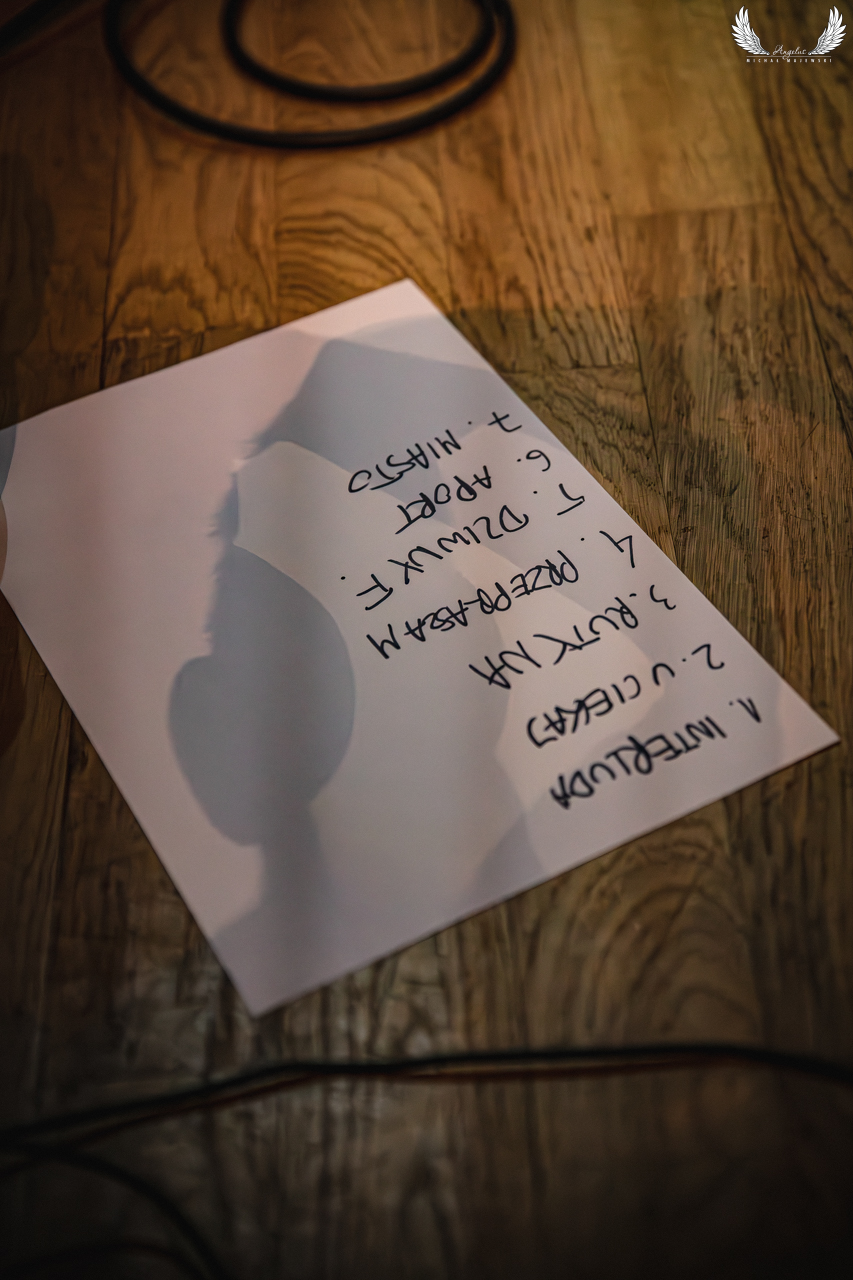 1. INTERLUDA
2. UCIEKAJ
3. RUTYNA
4. PRZEPRASZAM
5. DZIWUX F.
6. APORT
7. MIASTO
Angelus
MICHAŁ MAJEWSKI